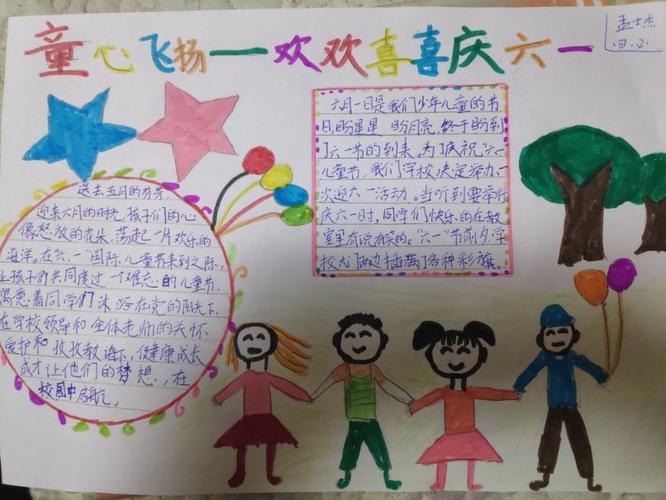 童心飞扬一欢欢喜喜庆六一
孟士杰
四.2
六月一日是我们少年儿童的节
日,盼星星 盼月亮,终于盼到
了六一节的到来。为了庆祝“六一”
儿童节,我们学校决定举办一
次迎六一活动。当听到要举行
庆六一时,同学们快乐的在教
室里有说有笑的。“六一”节前夕,学
校大门两边插满了各种彩旗。
送去五月的芬芳,
迎来六月的时光,孩子们的心
像怒放的花朵,荡起一片欢乐的
海洋。在“六一”国际儿童节来到之际,
让孩子们共同度过一个难忘的儿童节,
寓意着同学们沐浴在党的阳光下,
在学校领导和全体老师的关怀
爱护和孜孜教诲下,健康成长
成才让他们的梦想,在
校园中启航。